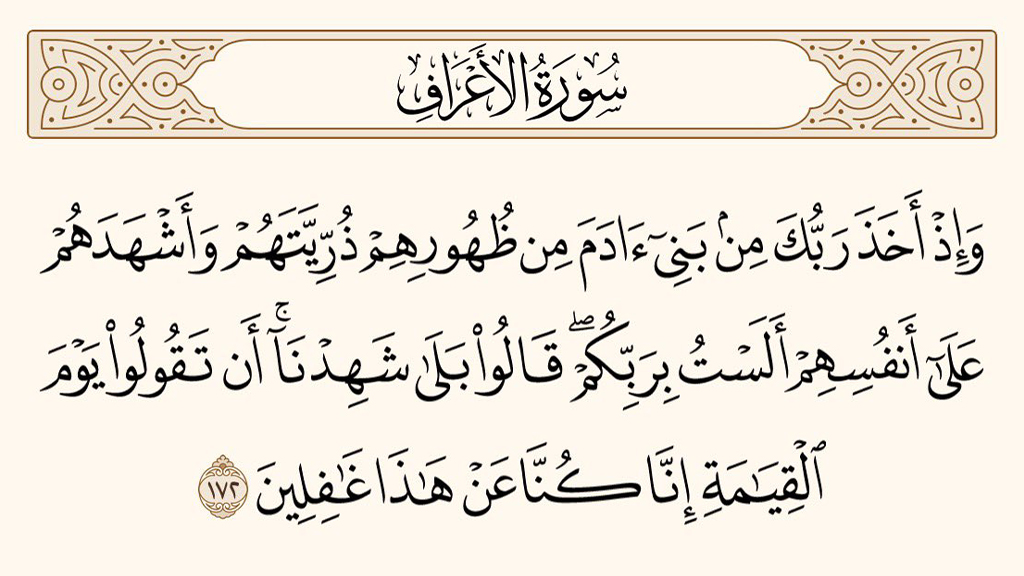 سُورَةُ الأَعْرَافِ
وَإِذْ أَخَذَ رَبُّكَ مِنۢ بَنِىٓ ءَادَمَ مِن ظُهُورِهِمْ ذُرِّيَّتَهُمْ وَأَشْهَدَهُمْ
عَلَىٰٓ أَنفُسِهِمْ أَلَسْتُ بِرَبِّكُمْ ۖ قَالُوا۟ بَلَىٰ شَهِدْنَآ ۚ أَن تَقُولُوا۟ يَوْمَ
ٱلْقِيَـٰمَةِ إِنَّا كُنَّا عَنْ هَـٰذَا غَـٰفِلِينَ ١٧٢